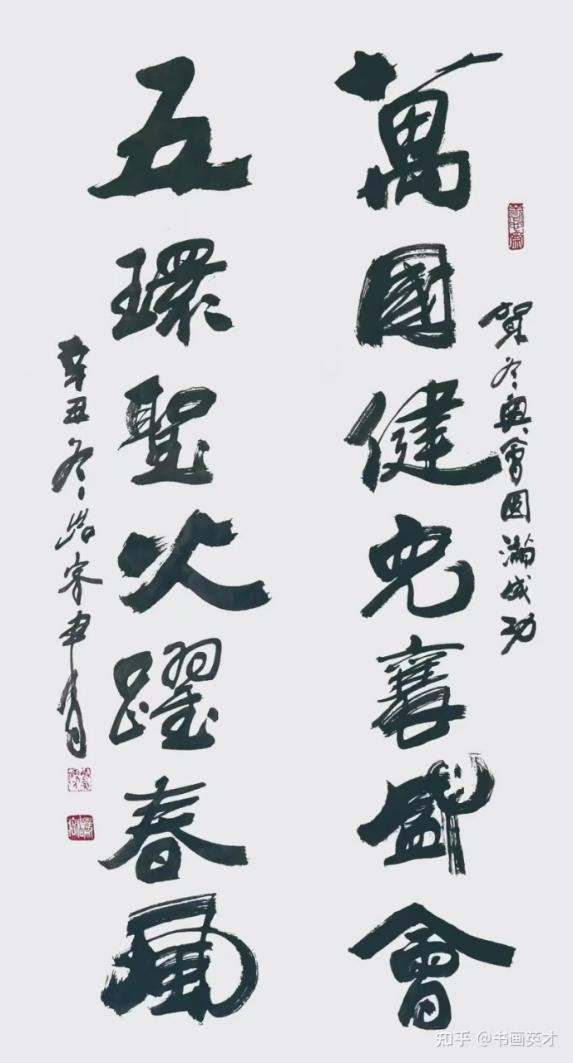 賀冬奥會圓滿成功
萬國健兒襄盛會
五環聖火躍春風
辛丑冬
知乎 @书画英才